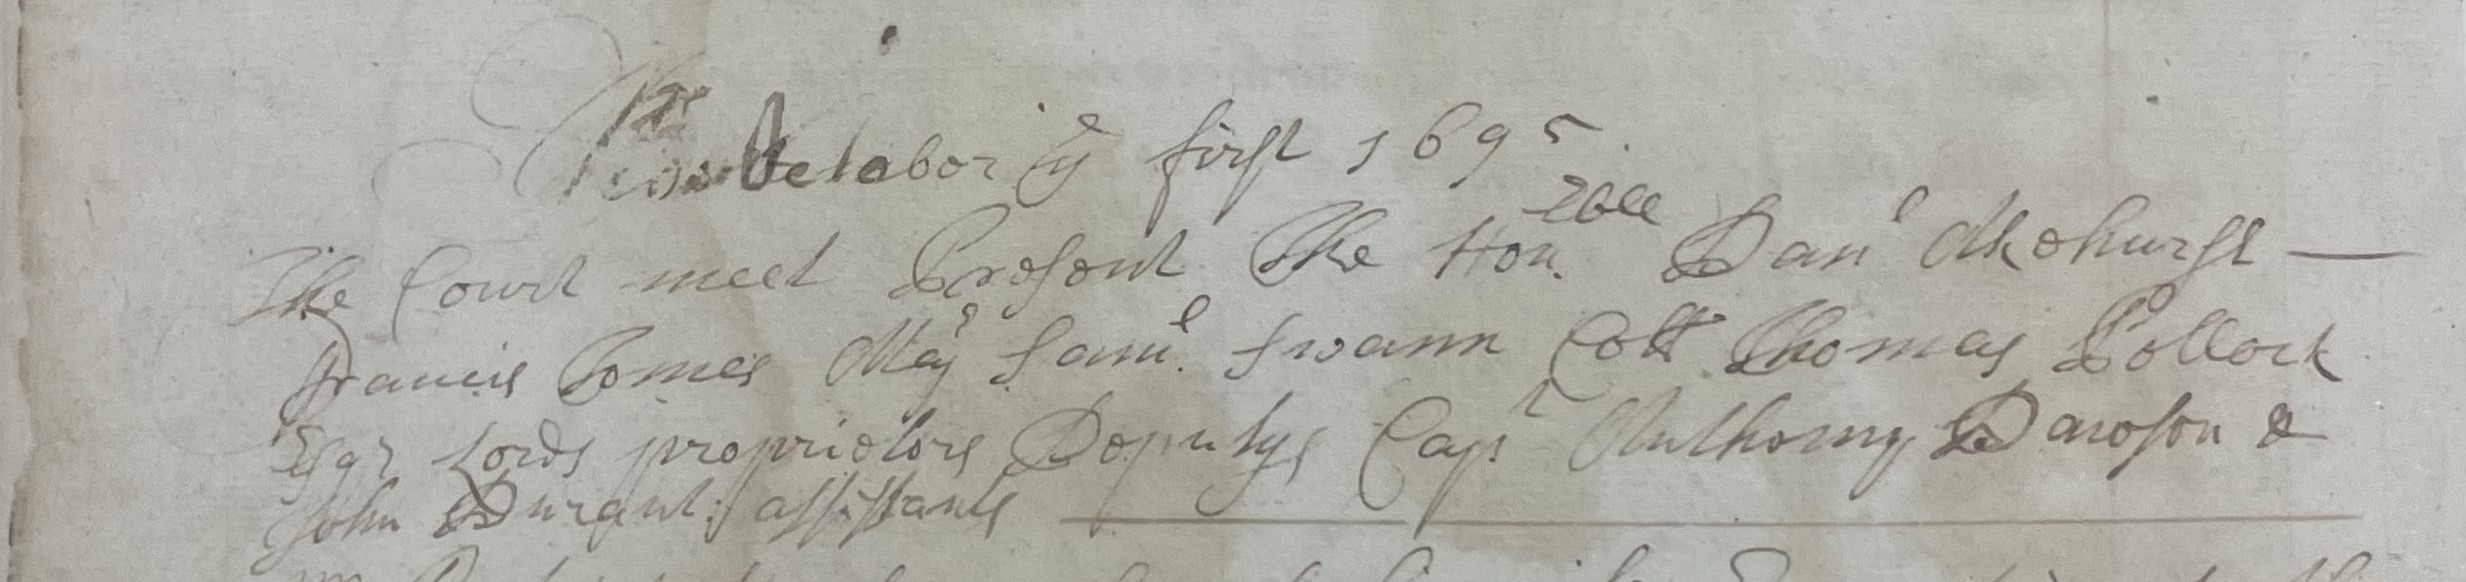 October yᵉ first 1695.
The Court meet Present The Honᵇˡᵉ Danˡ Akehurst —
Francis Tomes Majʳ Samˡ Swann Collº Thomas Pollock
Esqr Lords proprietors Deputys Capᵗ Anthony Dawson &
John Durant: assistants